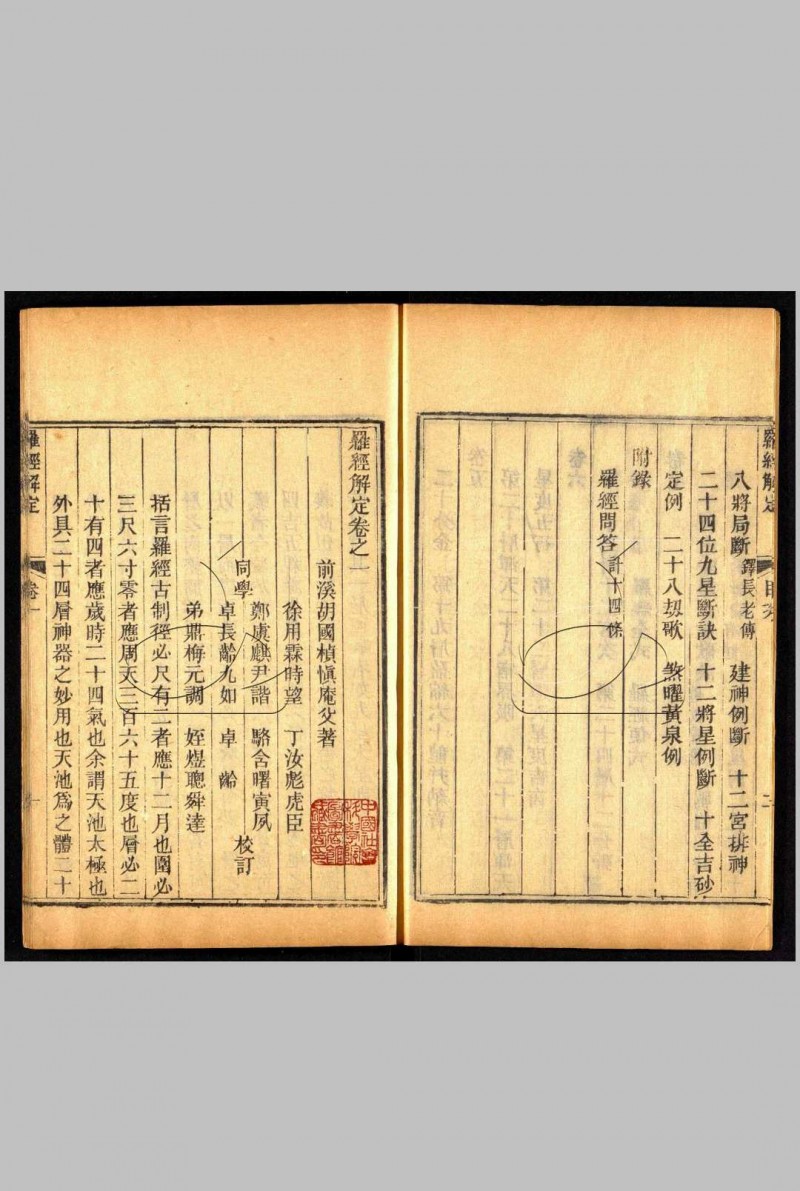 羅經解定 目次 二
八將局斷鐸長老傳 建神例斷 十二宮排神
二十四位九星斷訣 十二將星例斷 十全吉砂
定例 二十八刼歌 煞曜黃泉例
附錄
羅經問答計十四條
羅經解定卷之一
前溪胡國楨慎庵父著
徐用霖時望 丁汝彪虎臣
鄭虞麒尹諧 駱舍曙寅夙
同學 校訂
卓長齡九如 卓齡
弟鼎梅元調 姪煜聰舜達
括言羅經古制徑必尺有二者應十二月也圍必
三尺六寸零者應周天三百六十五度也層必二
十有四者應歲時二十四氣也余謂天池太極也
外具二十四層神器之妙用也天池為之體二十
羅經解定 卷一 一